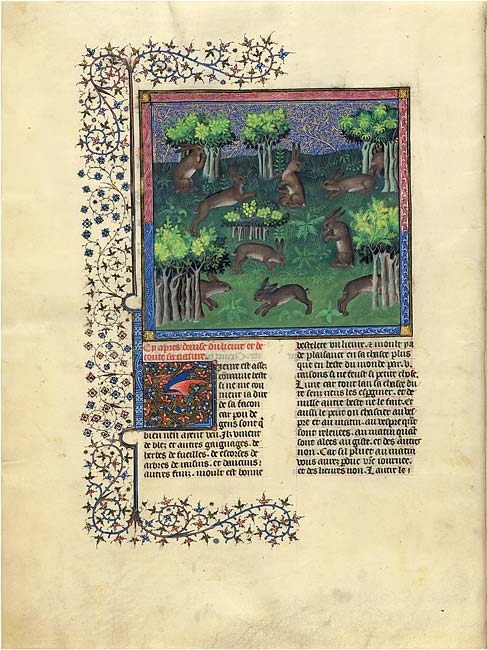 Cy apres devise du lievre et de
toute sa nature.
lievre est asses
commune beste
si ne me con
vient ja dire
de sa facon
car pou de
gens sont q
bien nen aient veu. Ilz vivent
de blez et autres gaignages. de
herbes de fueilles. de escorces de
arbres de raisins. et daucuns
autres fruiz. moult est bonne
bestelete un lievre. et moult y a
de plaisance en sa chasse plus
que en beste du monde par .v.
raisons si ne feust si petite chose.
Lune car tout lan sa chasse du
re sens riens les espargner. et de
nulle autre beste ne le fait. et
aussi le peut on chassier au ves
pre et au matin. au vespre que
sont relevees. au matin quant
sont ales au giste. et des autres
non. Car sil pluet au matin
vous aures perdue une journee.
et des lievres non. Lautre le